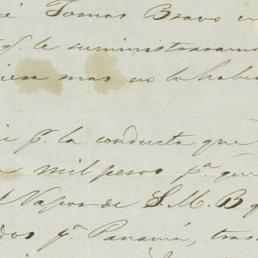 é Tomas Bravo en
q.e suministraramo
bien mas no lo habia
é p.r la conducta que
mil pesos p.a que
l Vapor de S. M. B q
dos p.a Panamá, tras